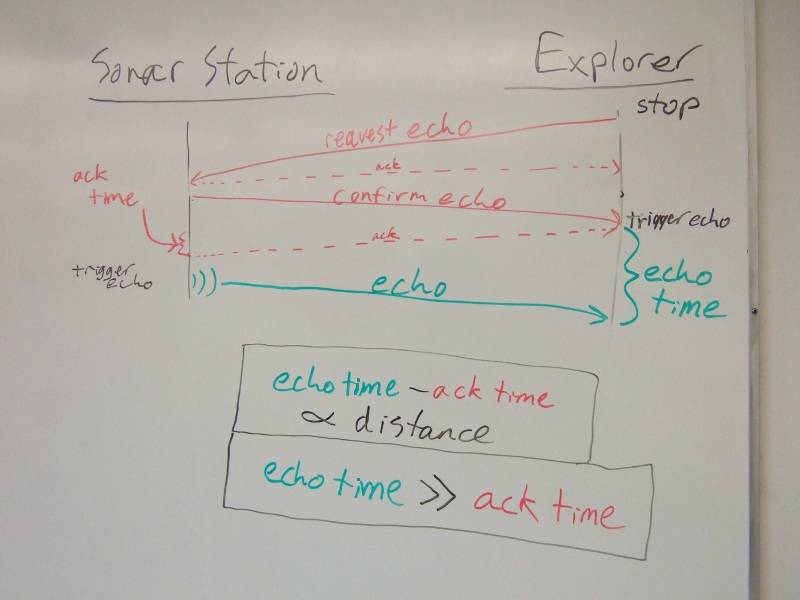 Sonar Station
Explorer
stop
request echo
ack
ack
time
confirm echo
trigger echo
ack
trigger
echo
)))
echo
echo
time
echo time - ack time
∝ distance
echo time >> ack time